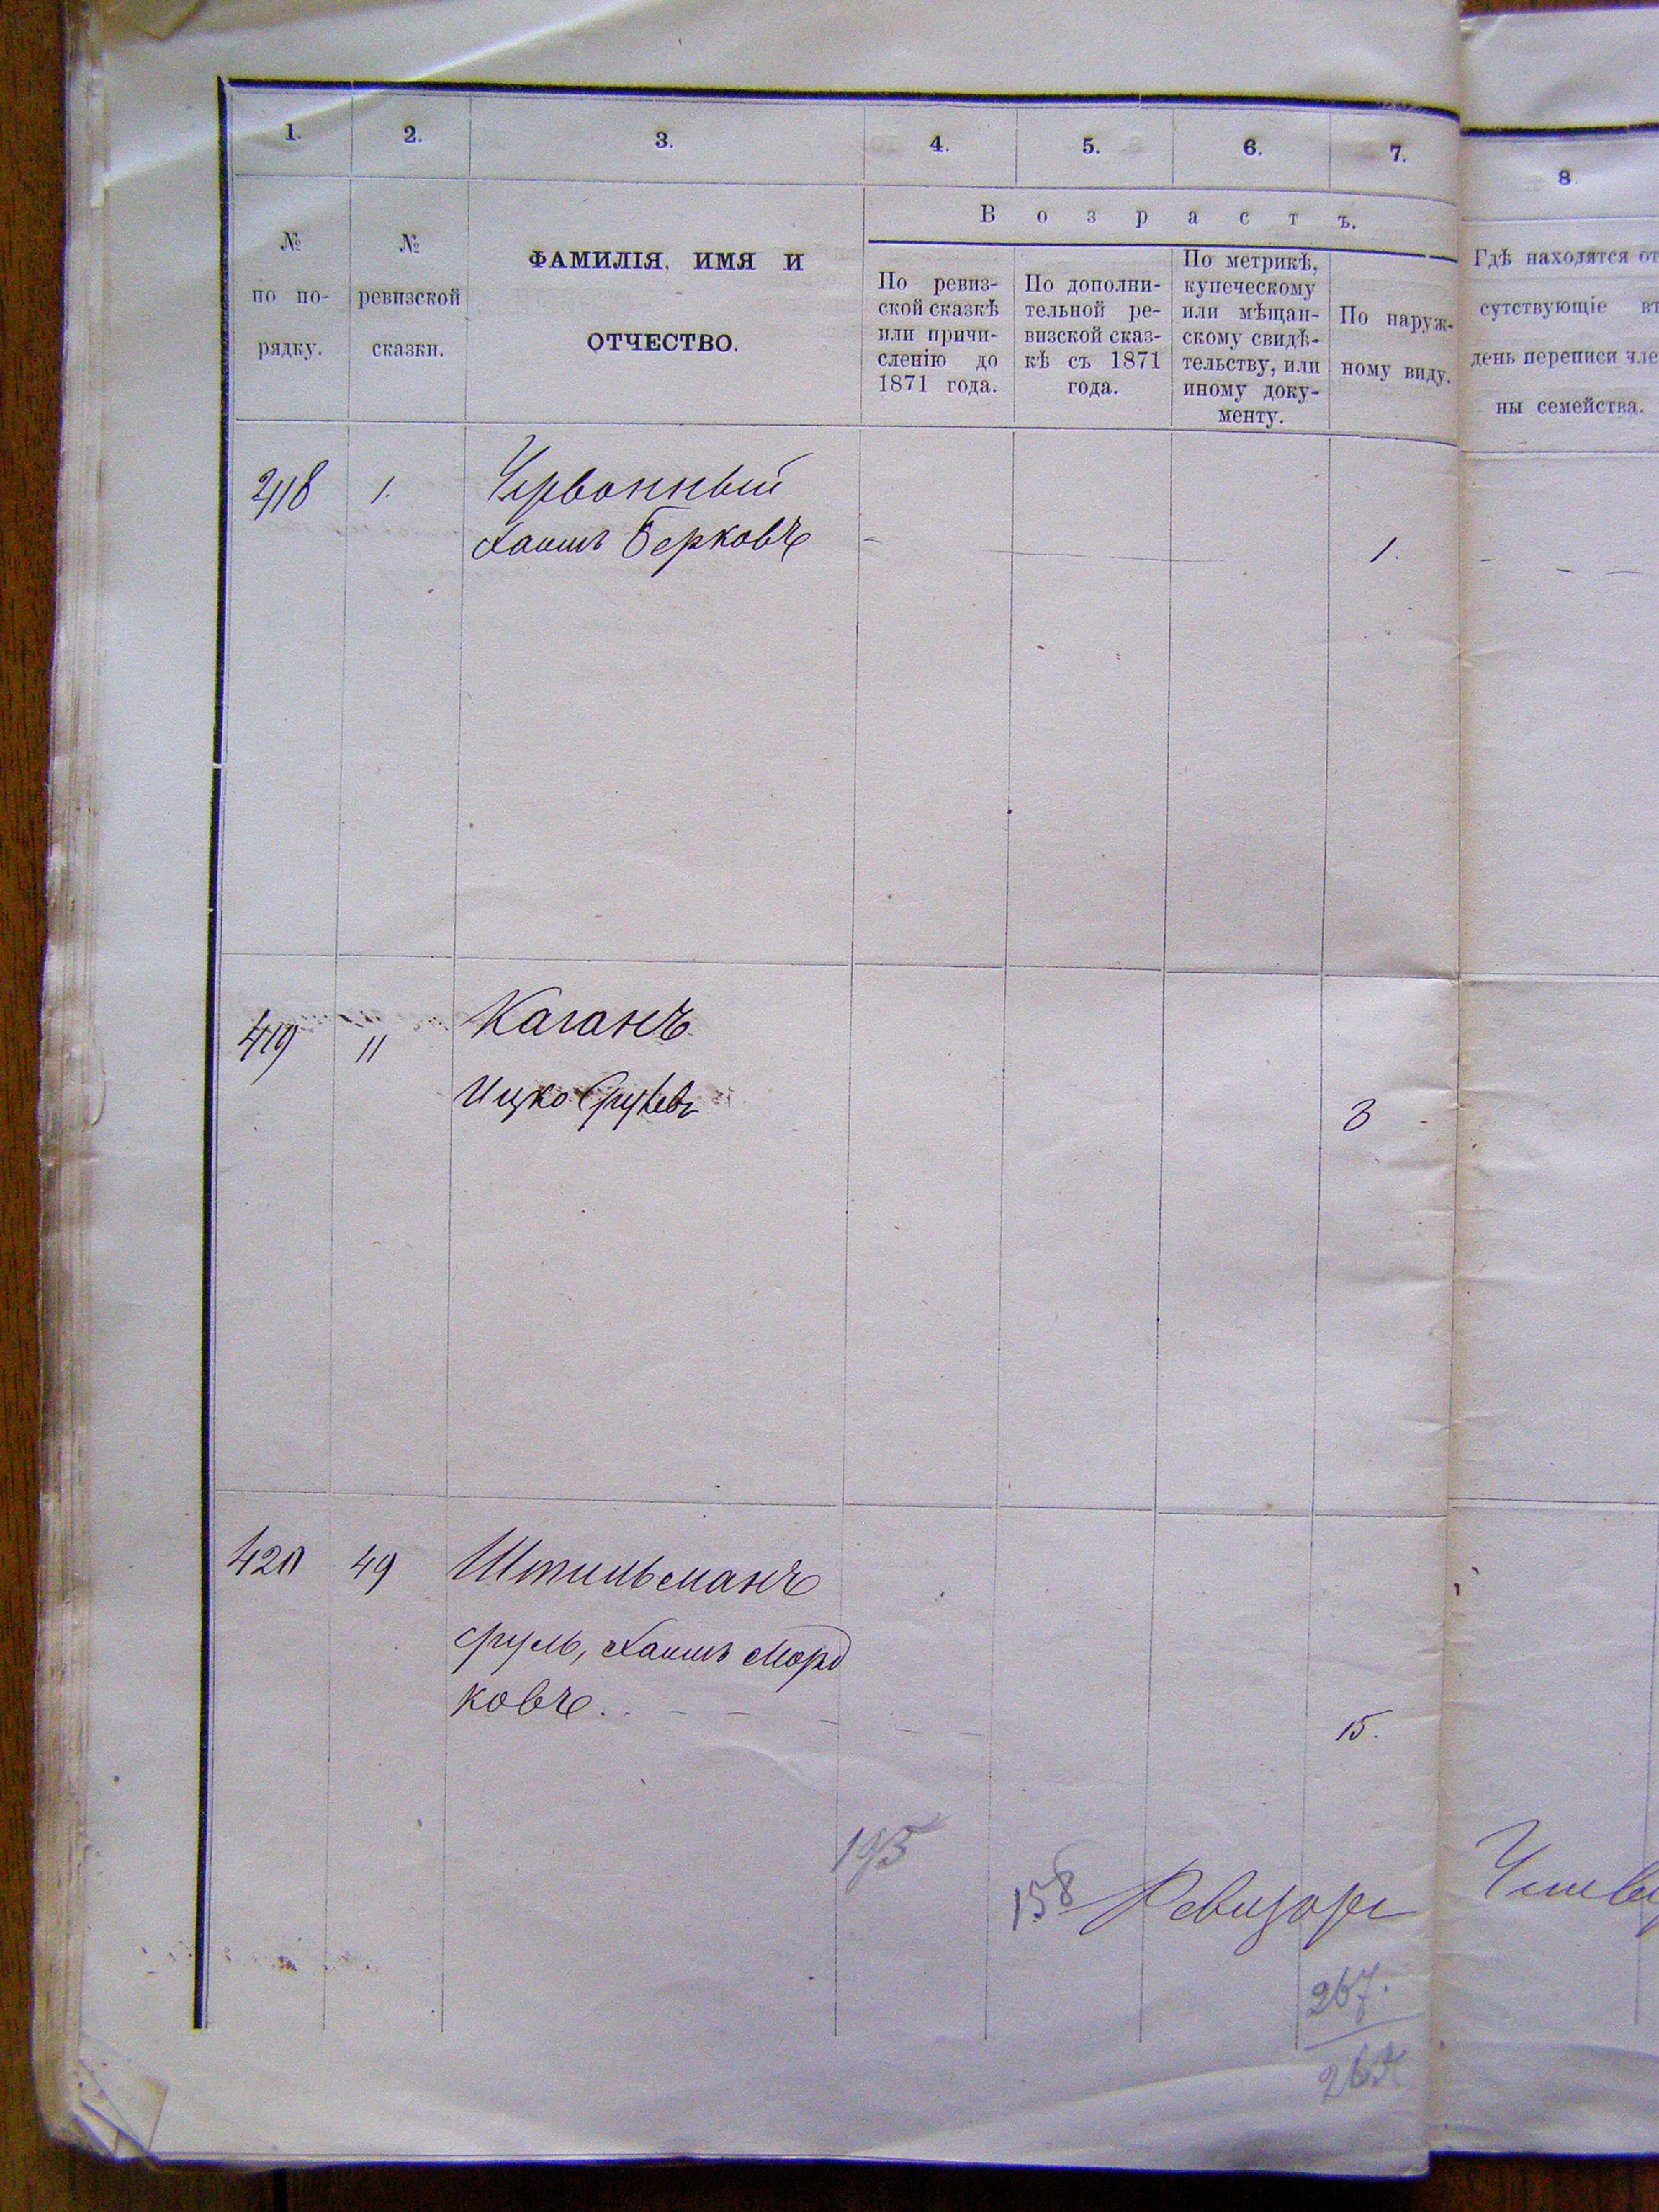 1. 2. 3. 4. 5. 6. 7. 8.
№
по по-
рядку.
№
ревизской
сказки.
ФАМИЛІЯ, ИМЯ И
ОТЧЕСТВО.
Возрастъ.
По ревиз-
ской сказкѣ
или причи-
сленію до
1871 года.
По дополни-
тельной ре-
визской сказ-
кѣ съ 1871
года.
По метрикѣ,
купеческому
или мѣщан-
скому свидѣ-
тельству, или
иному доку-
менту.
По наруж-
ному виду.
Гдѣ находятся от
сутствующіе въ
день переписи чле
ны семейства.
418 1. Червонный
Хаимъ Берковъ 1.
419 11 Каганъ
Ицко Срулевъ 3
420 49 Штильманъ
Сруль, Хаимъ Морд
ковъ. 15.
195
158 Ревизоръ
267.